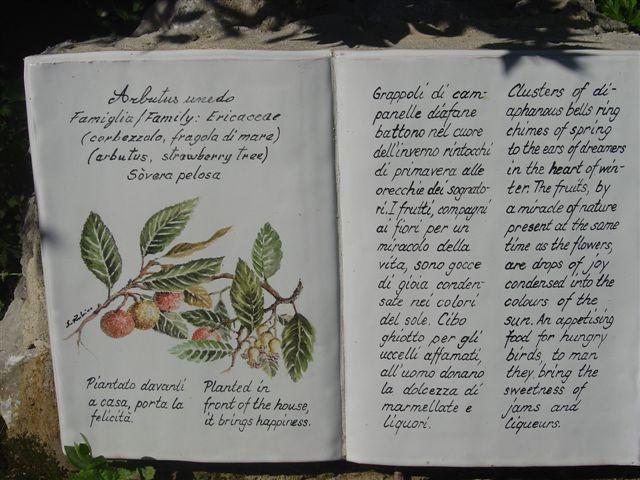 Arbutus unedo
Famiglia/Family: Ericaceae
(corbezzolo, fragola di mare)
(arbutus, strawberry tree)
Sòvera pelosa
Piantato davanti
a casa, porta la
felicità.
Planted in
front of the house,
it brings happiness.
Grappoli di cam-
panelle diafane
battono nel cuore
dell'inverno rintocchi
di primavera alle
orecchie dei sognato-
ri. I frutti, compagni
ai fiori per un
miracolo della
vita, sono gocce
di gioia conden-
sate nei colori
del sole. Cibo
ghiotto per gli
uccelli affamati,
all'uomo donano
la dolcezza di
marmellate e
liquori.
Clusters of di-
aphanous bells ring
chimes of spring
to the ears of dreamers
in the heart of win-
ter. The fruits, by
a miracle of nature
present at the same
time as the flowers,
are drops of joy
condensed into the
colours of the
sun. An appetising
food for hungry
birds, to man
they bring the
sweetness of
jams and
liqueurs.